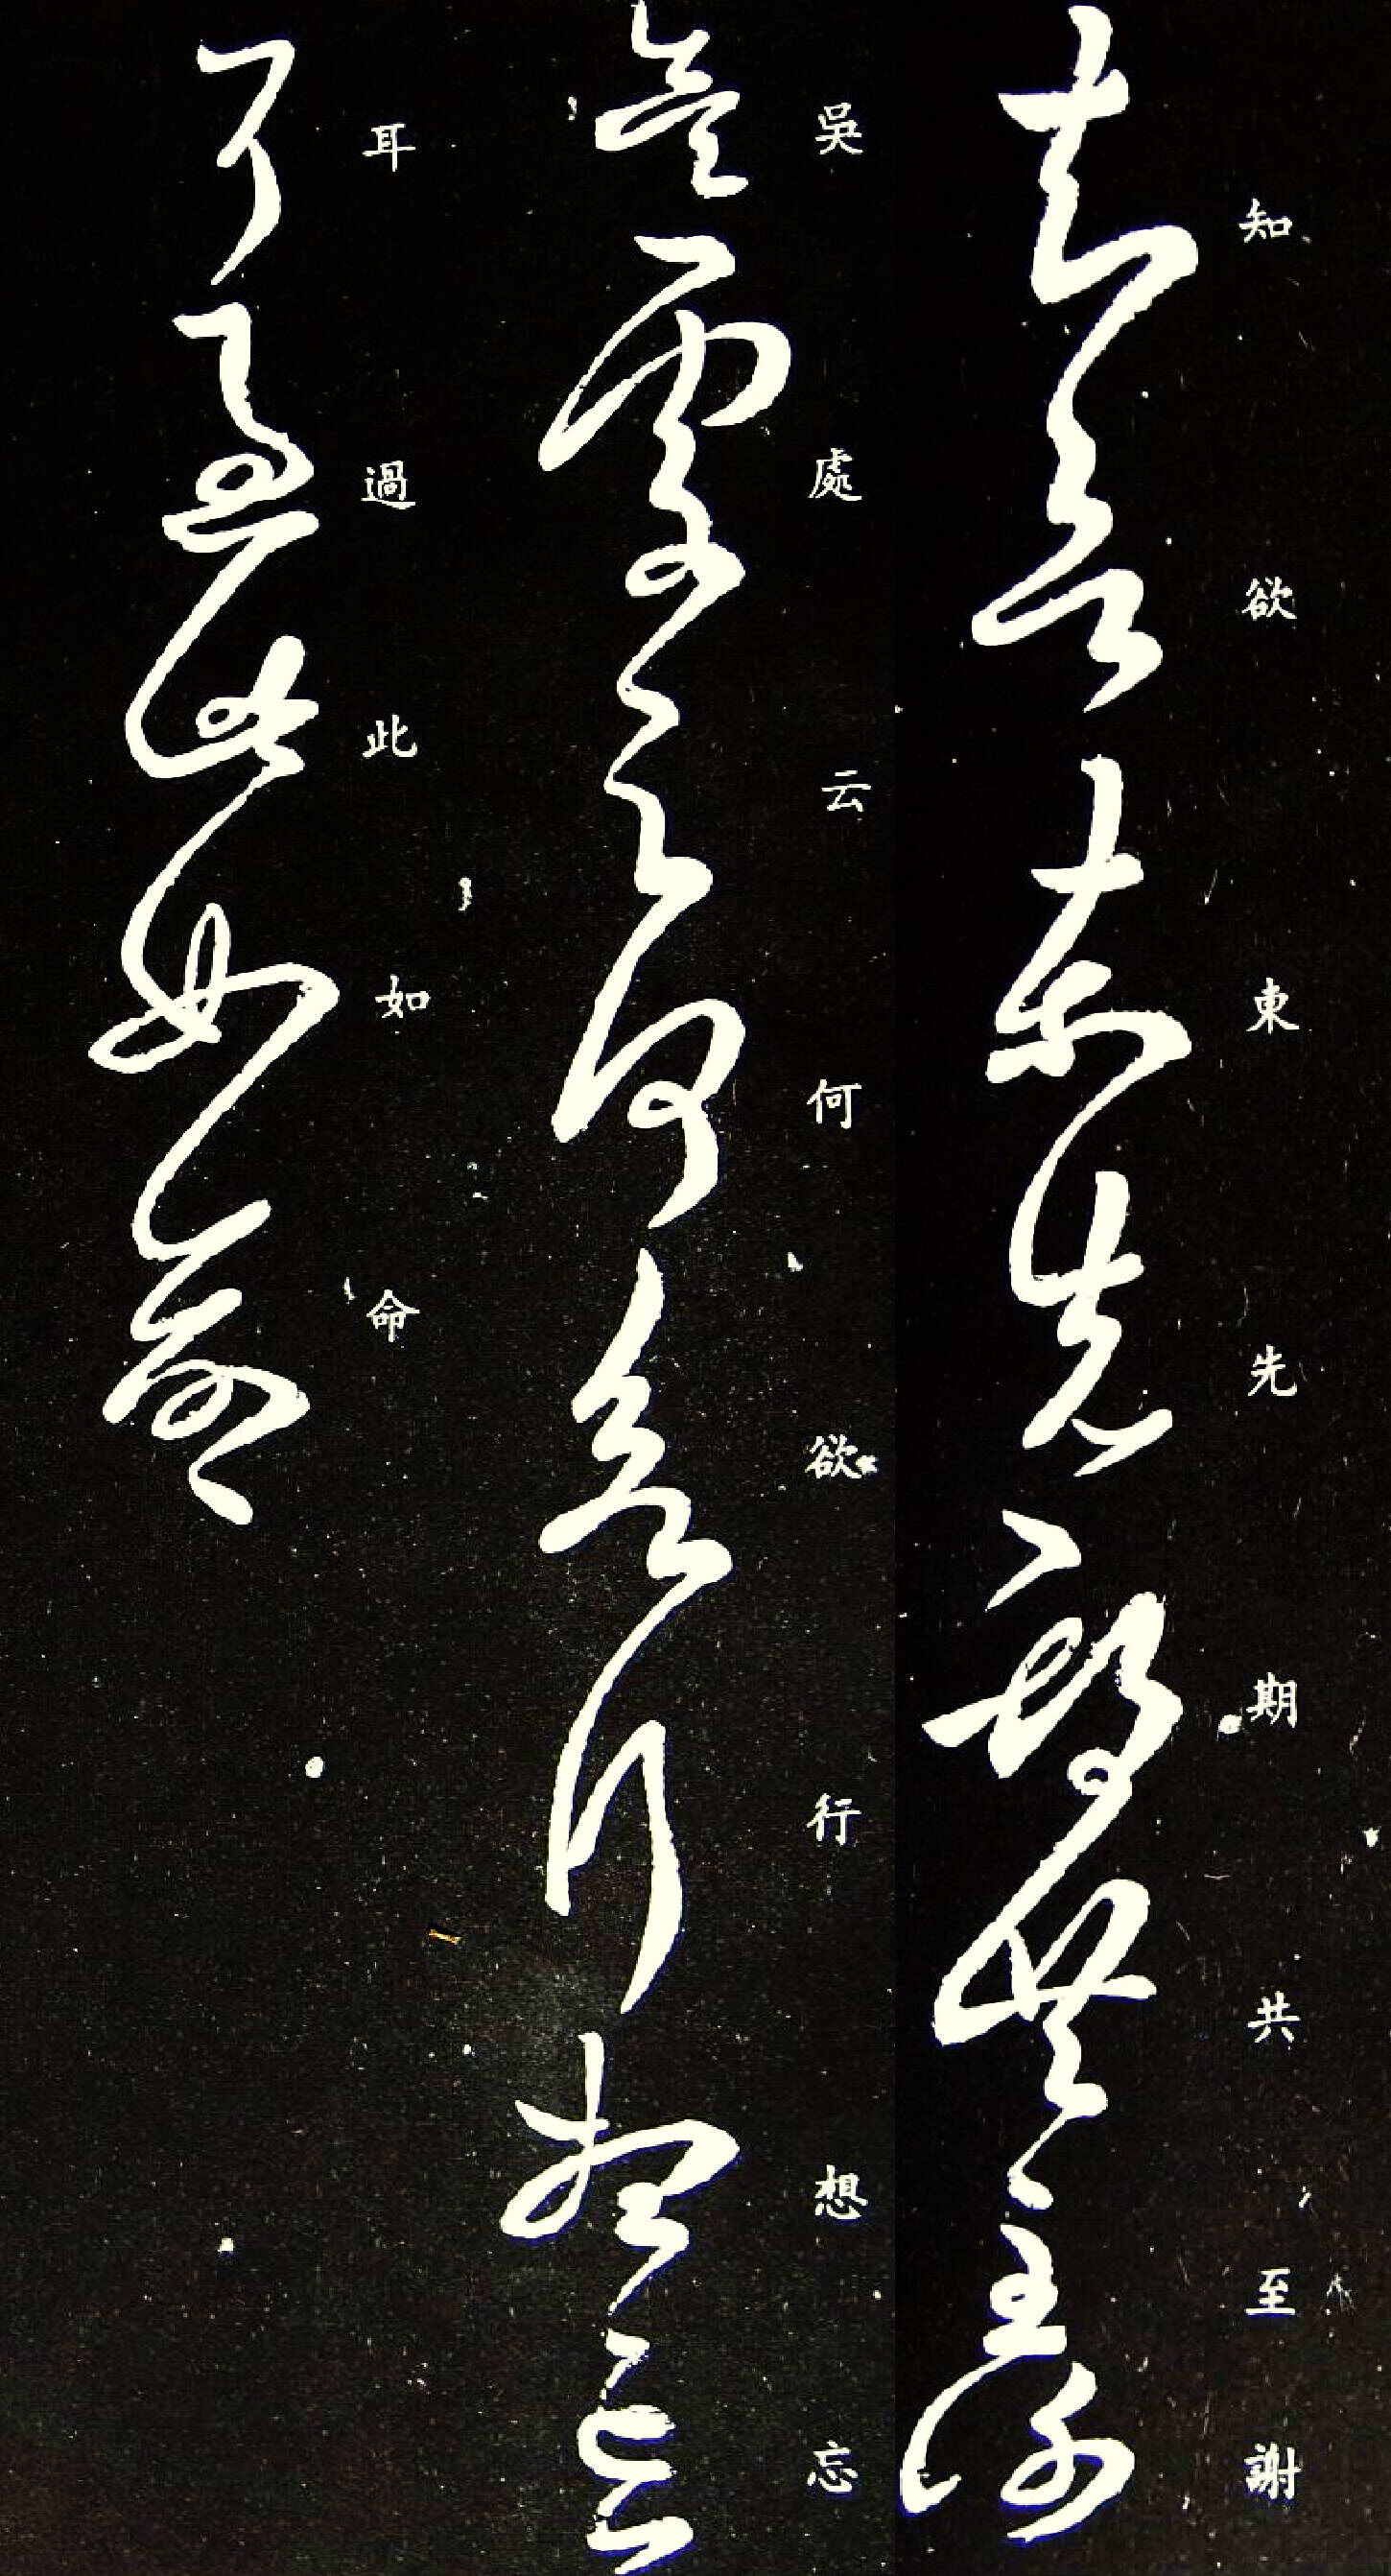 知欲東先期共至謝
吳處云何欲行想忘
耳過此如命